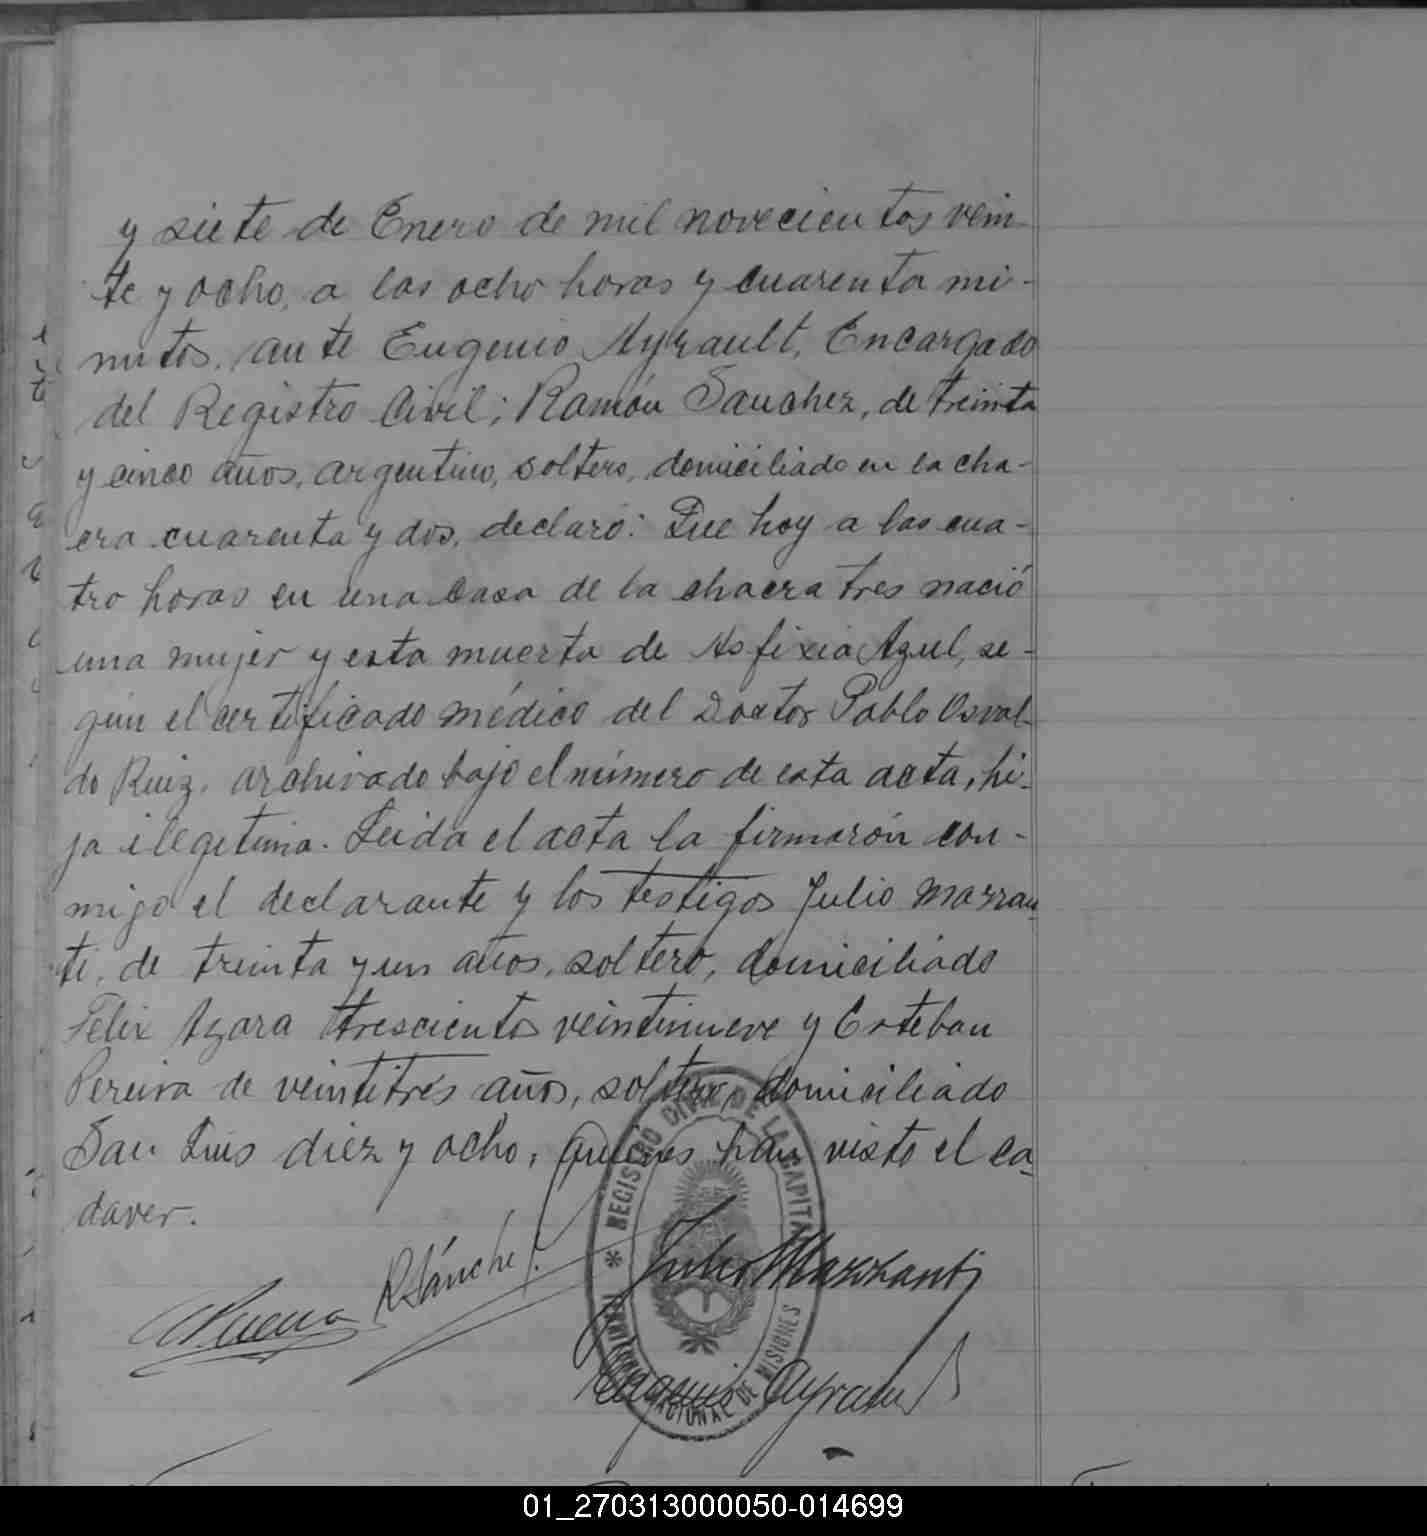 y siete de Enero de mil novecientos vein-
te y ocho, a las ocho horas y cuarenta mi-
nutos, ante Eugenio Ayrault, Encargado
del Registro Civil; Ramón Sanchez, de treinta
y cinco años, argentino, soltero, domiciliado en la cha-
cra cuarenta y dos, declaró: Que hoy a las cua-
tro horas en una casa de la chacra tres nació
una mujer y esta muerta de Asfixia Azul, se-
gún el certificado médico del Doctor Pablo Osval-
do Ruiz, archivado bajo el número de esta acta, hi-
ja ilegetima. Leida el acta la firmarón con-
migo el declarante y los testigos Julio Marzan
ti, de treinta y un años, soltero, domiciliado
Felix Azara trescientos veintinueve y Esteban
Pereira de veintitrés años, soltero, domiciliado
San Luis diez y ocho, quienes han visto el ca-
daver.
R Sánchez
Julio Marzanti
Eugenio Ayrault
REGISTRO CIVIL DE LA CAPITAL
* TERRITORIO NACIONAL DE MISIONES
01_270313000050-014699